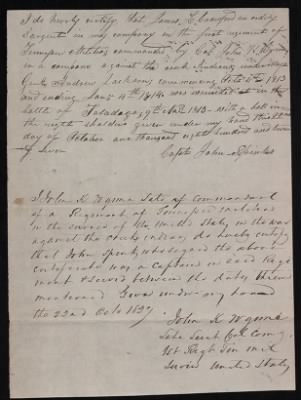 I do hereby certify that James C Crawford an orderly
Sargent in my company in the first regiment of
Tennysee Militia commanded by Col John K Wynne
in a campain against the creek Indians under
Genl Andrew Jackson commencing Octo 4th 1813
and ending Jany 4th 1814 was wounded in the
battle of Taladega 9th Nov 1813 with a ball in
the right sholder given under my hand this
day of October one thousand eight hundred and twenty
Seven
Capt John Spinks
I John K Wynne late of commandant
of a Regiment of Tennessee militia
in the service of the United States in the war
against the creek indians do hereby certify
that John Spinks who signed the above
certificate was a Captain in said Regi
ment & served between the dates therein
mentioned Given under my hand
the 22nd Octo 1827
John K Wynne
Late Lieut Col. Comg
1st Regt Ten mil
Service United States